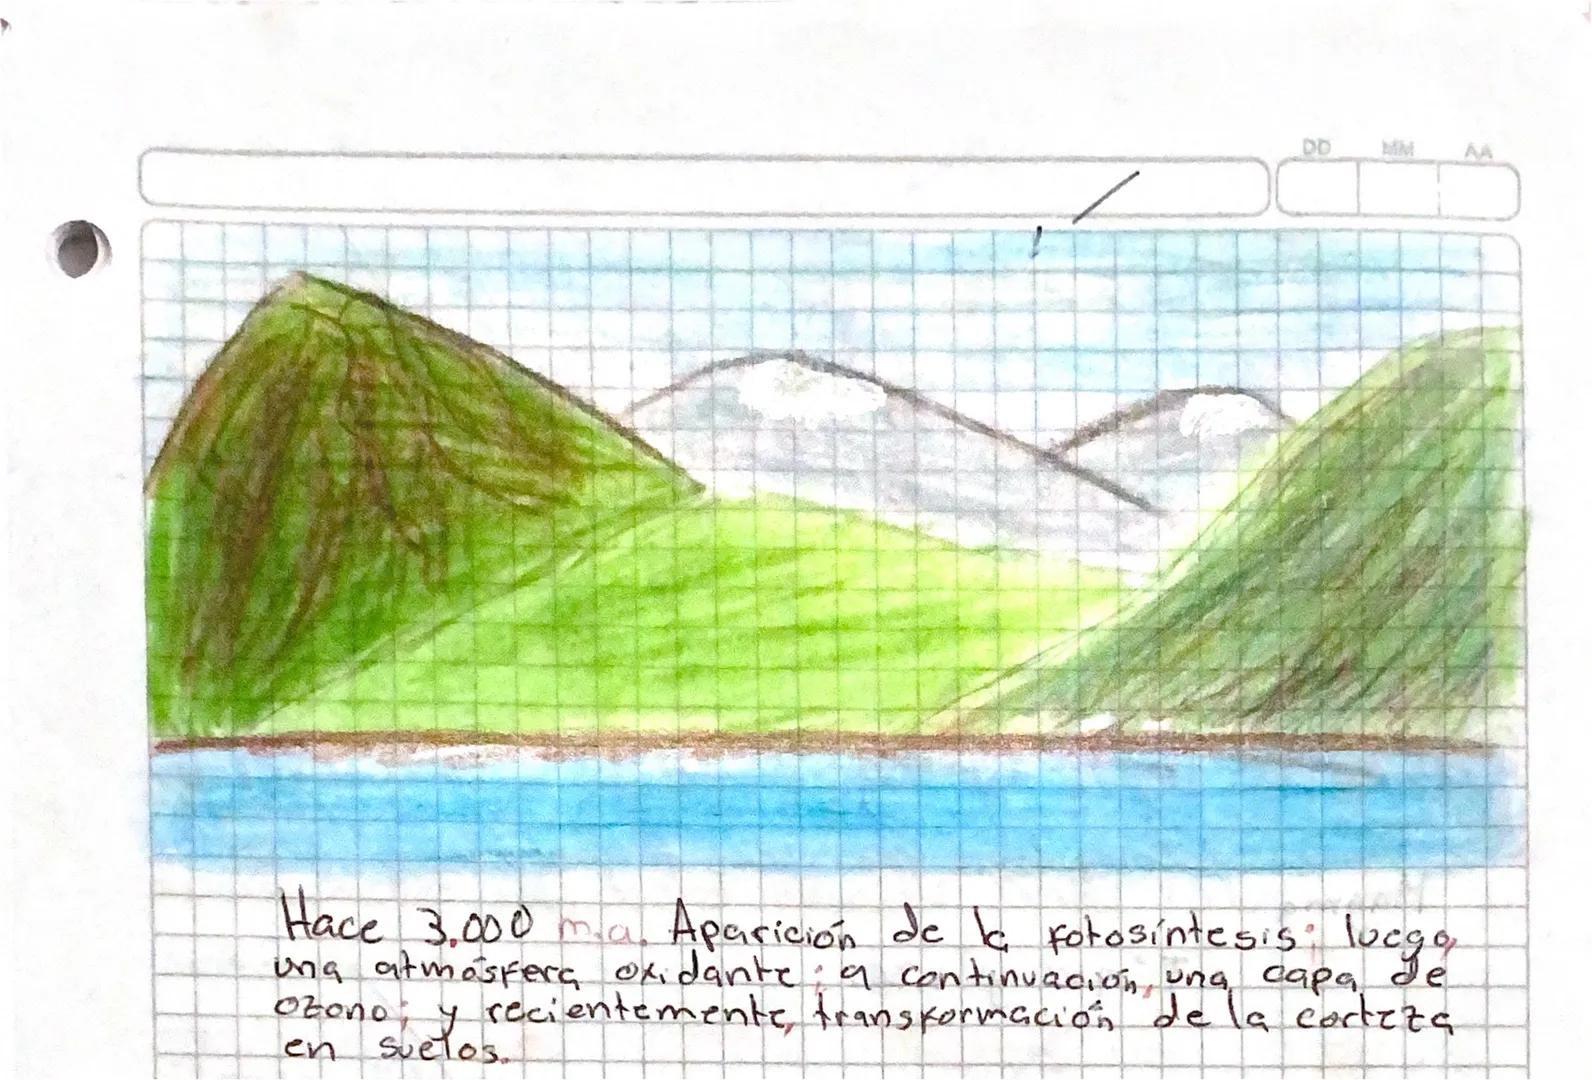 DD MM AA
Hace 3.000 m.a. Aparición de la fotosíntesis; luego,
una atmósfera oxidante; a continuación, una capa de
ozono; y recientemente, transformación de la corteza
en suelos.